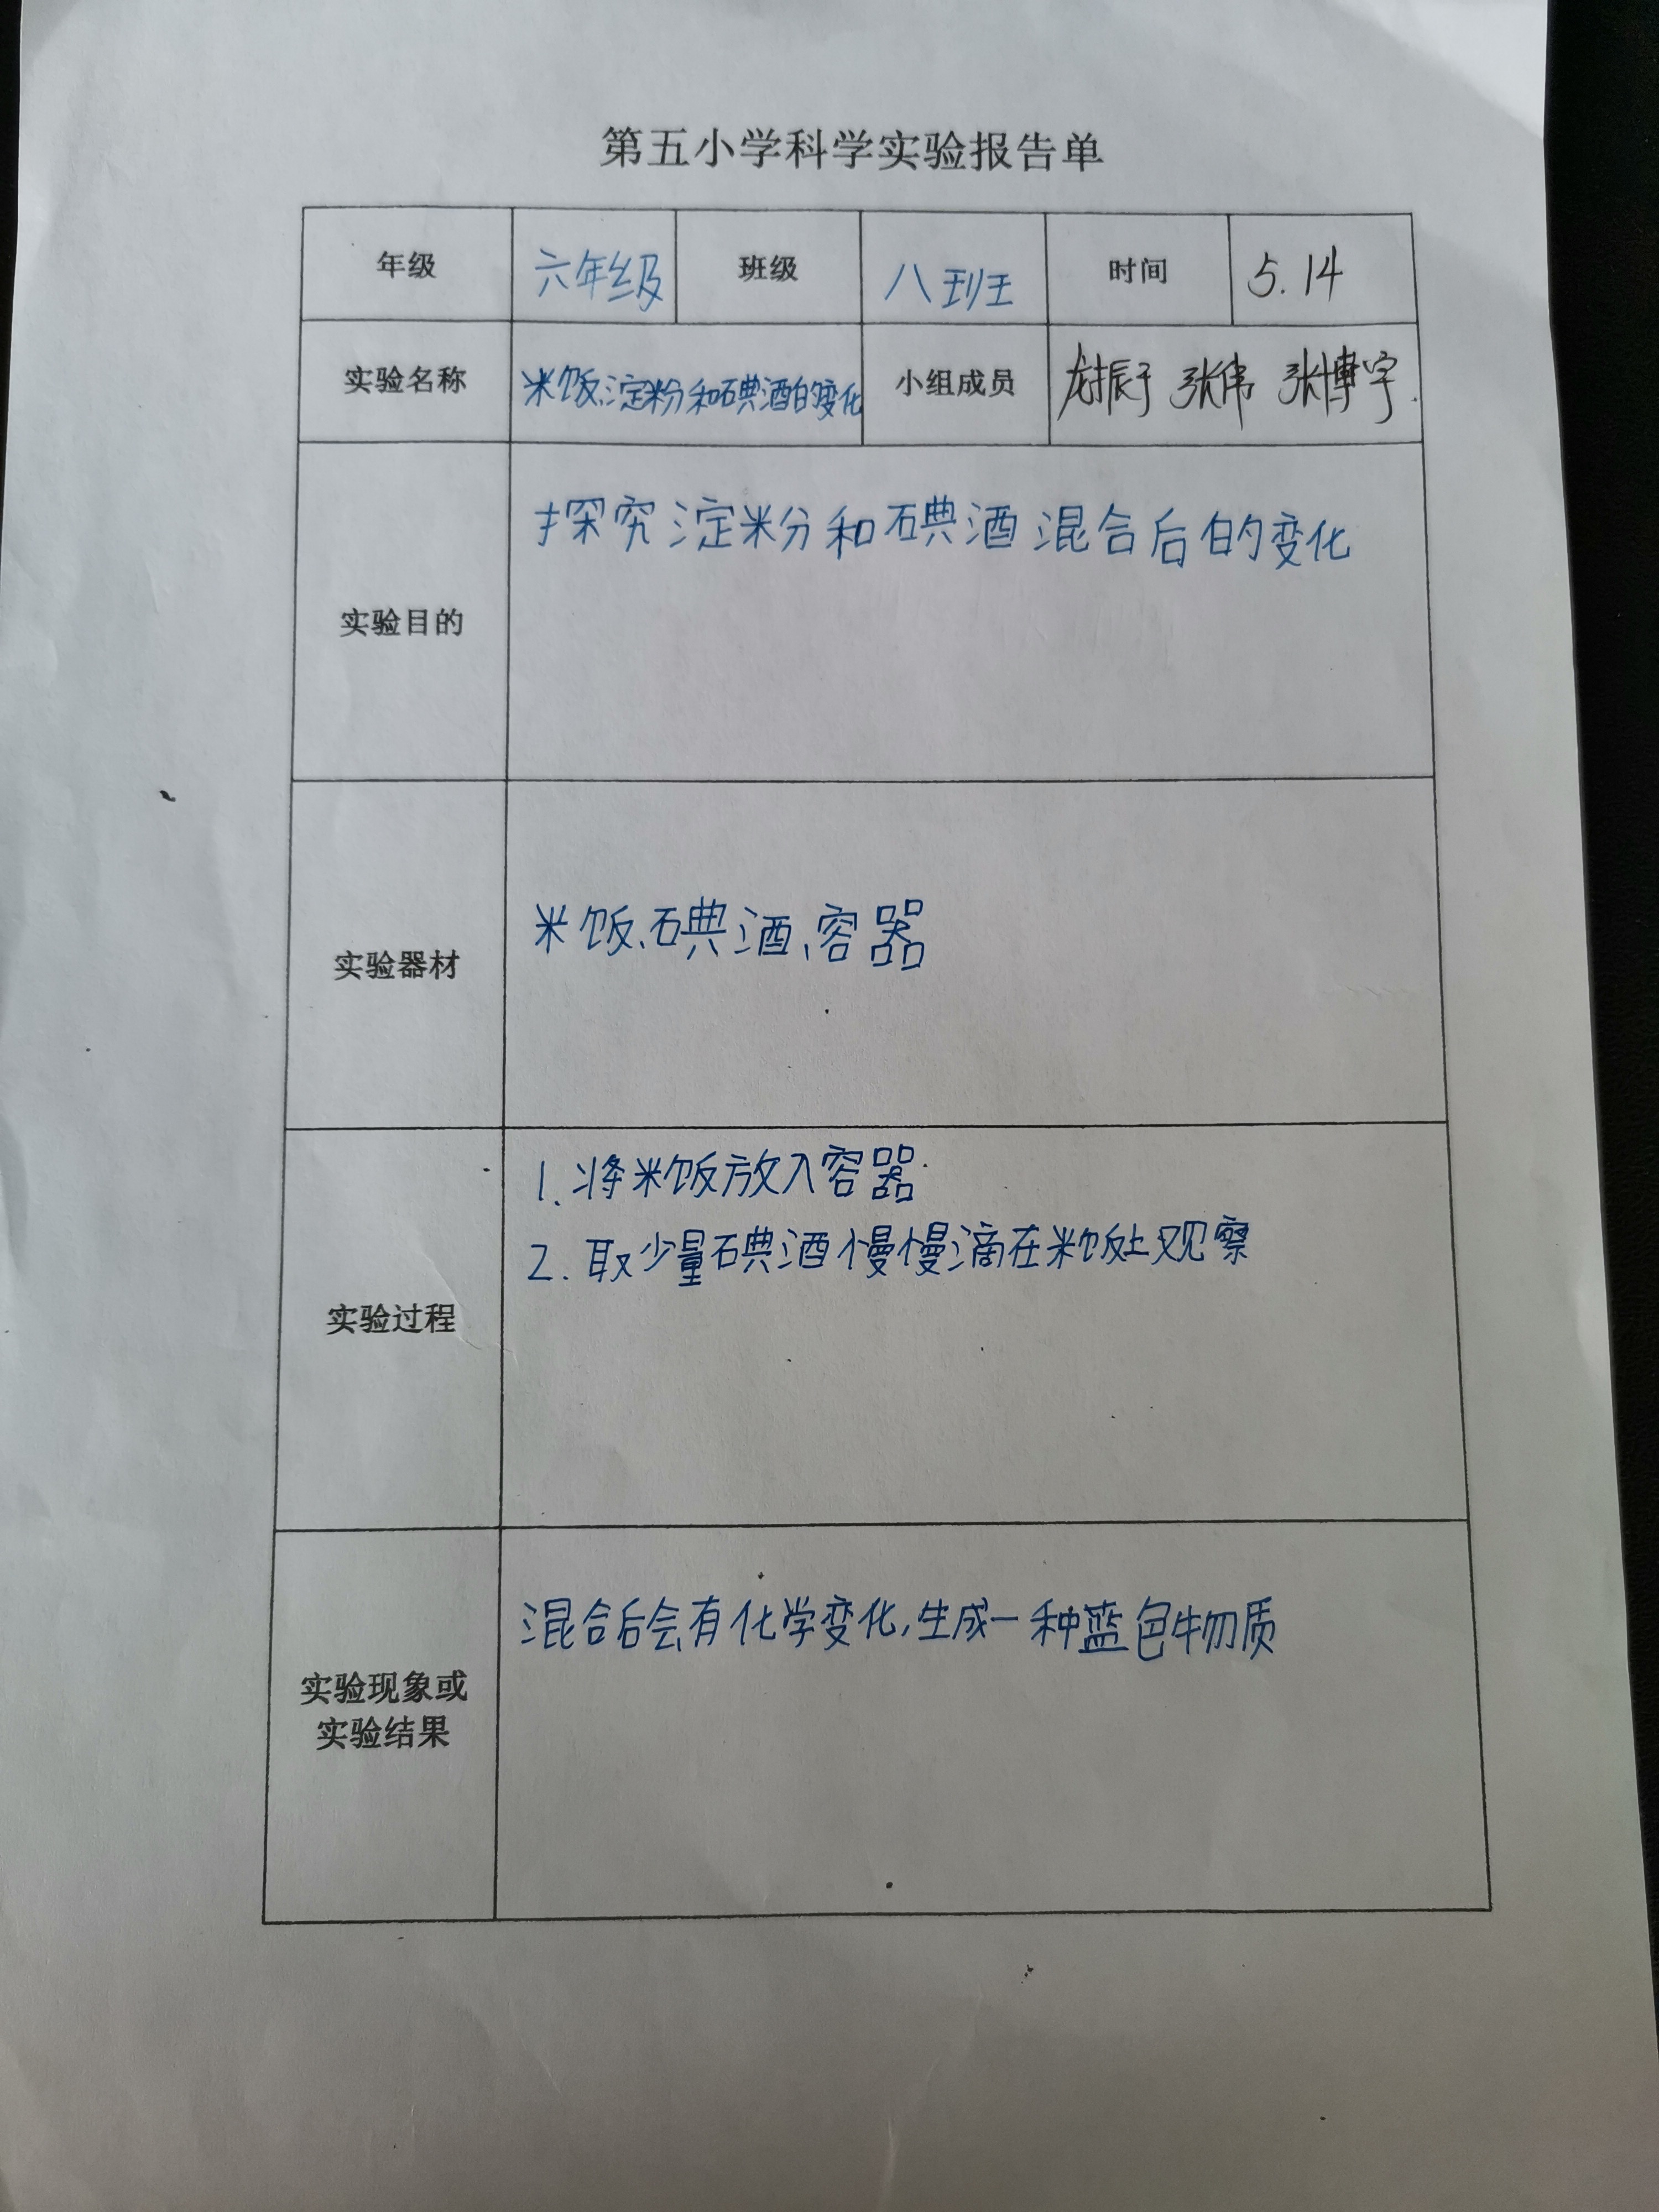 第五小学科学实验报告单
年级 六年级 班级 八班 时间 5.14
实验名称 米饭、淀粉和碘酒的变化 小组成员 龙振于 张伟 张博宇.
实验目的 探究淀粉和碘酒混合后的变化
实验器材 米饭、碘酒、容器
实验过程
1.将米饭放入容器
2.取少量碘酒慢慢滴在米饭上观察
实验现象或
实验结果
混合后会有化学变化,生成一种蓝色物质